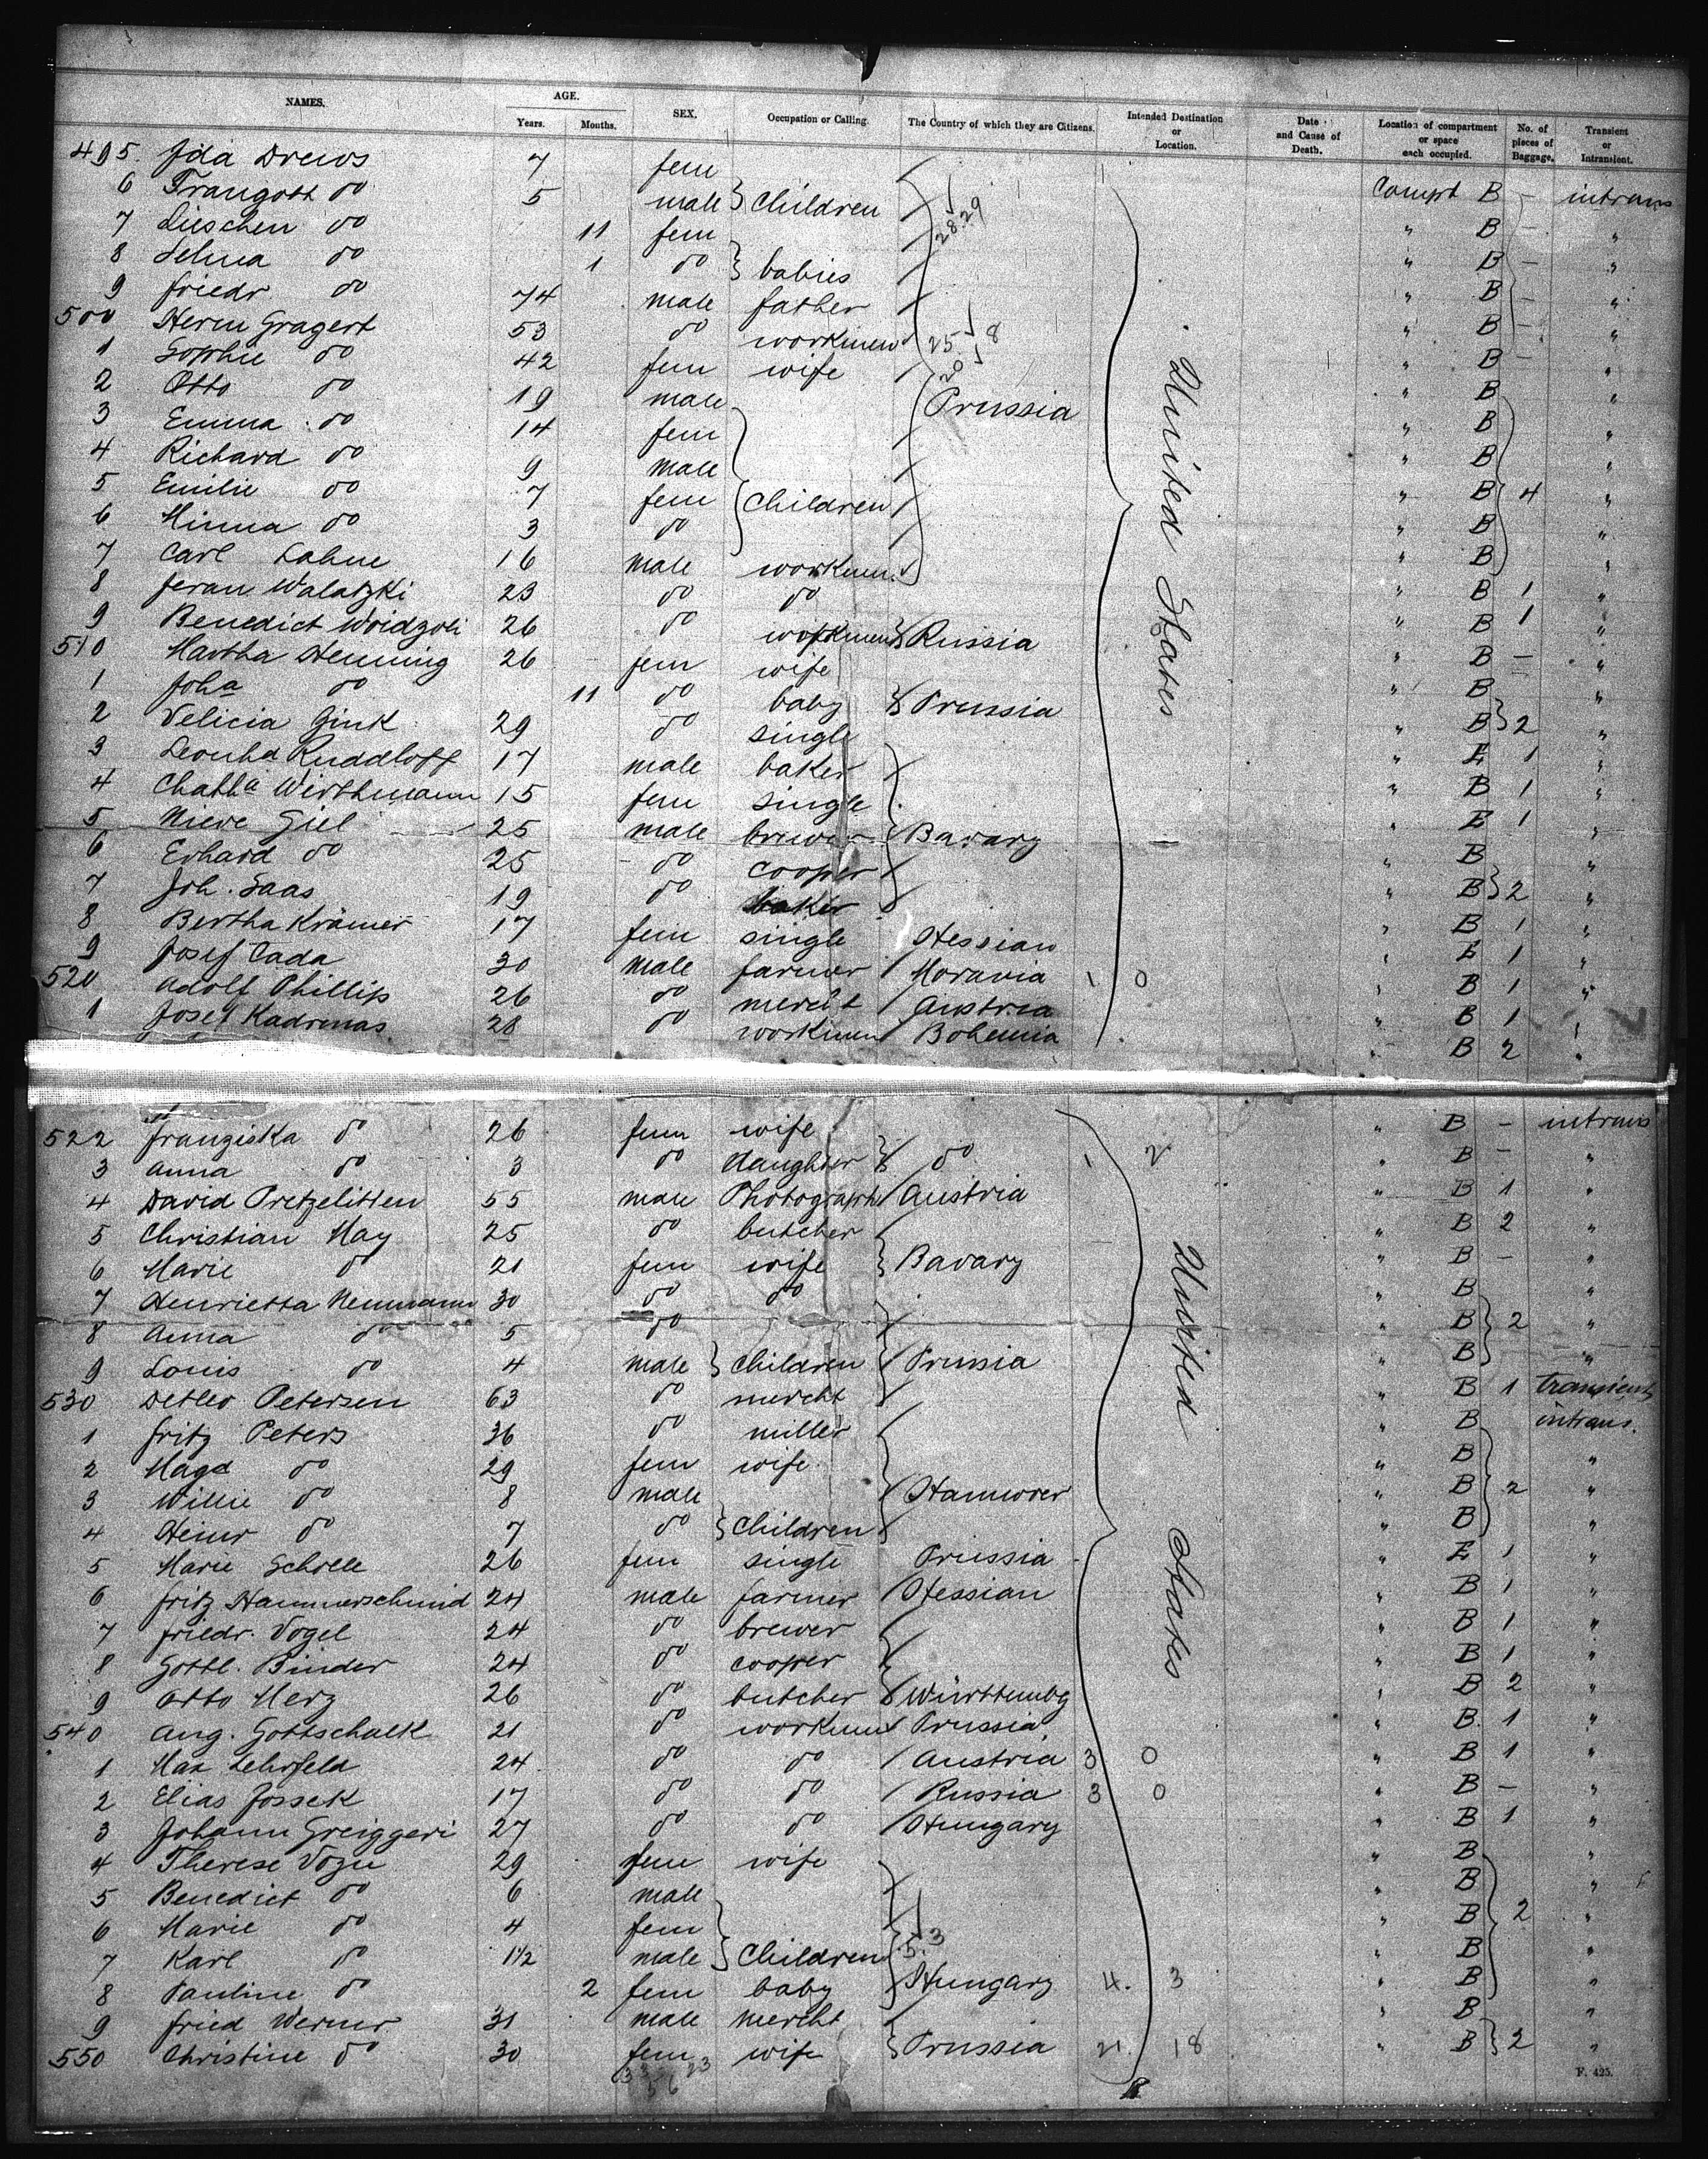 NAMES. AGE. Years. Months. SEX. Occupation or Calling. The Country of which they are Citizens. Intended Destination or Location. Date and Cause of Death. Location of compartment or space each occupied. No. of pieces of Baggage. Transient or Intransient.
495. Ida Drews 7 fem
6 Traugott do 5 male } Children Compt B – intrans
7 Lieschen do 11 fem 28. 29 " B – "
8 Selma do 1 do } babies " B – "
9 Friedr do 74 male father " B – "
500 Herm Gragert 53 do workmen 25 8 " B – "
1 Sophie do 42 fem wife 20 " B – "
2 Otto do 19 male Prussia " B "
3 Emma do 14 fem " B "
4 Richard do 9 male " B "
5 Emilie do 7 fem Children " B 4 "
6 Minna do 3 do " B "
7 Carl Lahne 16 male workmen " B "
8 Jeran Walatzki 23 do do " B 1 "
9 Benedict Woidzoli 26 do workmen Russia " B 1 "
510 Martha Henning 26 fem wife " B – "
1 Joha do 11 do baby Prussia " B "
2 Velicia Gink 29 do single " B 2 "
3 Leonhd Ruddloff 17 male baker " E 1 "
4 Chatha Wirthmann 15 fem single " B 1 "
5 Nieve Giel 25 male brewer Bavary " B 1 "
6 Erhard do 25 do cooper " B "
7 Joh. Saas 19 do baker " B 2 "
8 Bertha Krämer 17 fem single Hessian " B 1 "
9 Josef Cada 30 male farmer Moravia 1 0 " E 1 "
520 Adolf Phillips 26 do mercht Austria " B 1 "
1 Josef Kadrmas 28 do workmen Bohemia " B 1 "
" B 2 "
United States
522 Franziska do 26 fem wife " B – intrans
3 Anna do 3 do daughter do 1 2 " B – "
4 David Pretzelitten 55 male Photograph Austria " B 1 "
5 Christian May 25 do butcher " B 2 "
6 Marie do 21 fem wife Bavary " B – "
7 Henrietta Neumann 30 do do " B "
8 Anna do 5 do " B 2 "
9 Louis do 4 male } Children Prussia " B "
530 Detlev Petersen 63 do mercht " B 1 transient
1 Fritz Peters 36 do miller " B intrans.
2 Magd do 29 fem wife " B "
3 Willie do 8 male Hannover " B 2 "
4 Heinr do 7 do } Children " B "
5 Marie Scholle 26 fem single Prussia " E 1 "
6 Fritz Hammerschmid 24 male farmer Hessian " B 1 "
7 Friedr. Vogel 24 do brewer " B 1 "
8 Gottl. Binder 24 do cooper " B 1 "
9 Otto Merz 26 do butcher Württembg " B 2 "
540 Aug. Gottschalk 21 do workmen Prussia " B 1 "
1 Max Lehrfeld 24 do do Austria 3 0 " B 1 "
2 Elias Jossek 17 do do Russia 3 0 " B – "
3 Johann Greiggeri 27 do do Hungary " B 1 "
4 Therese Vozu 29 fem wife " B "
5 Benedict do 6 male " B "
6 Marie do 4 fem " B 2 "
7 Karl do 1½ male } Children 5. 3 " B "
8 Pauline do 2 fem baby Hungary 4. 3 " B "
9 Fried Werner 31 male mercht " B "
550 Christine do 30 fem wife Prussia 21. 18 " B 2 "
United States
F. 425.